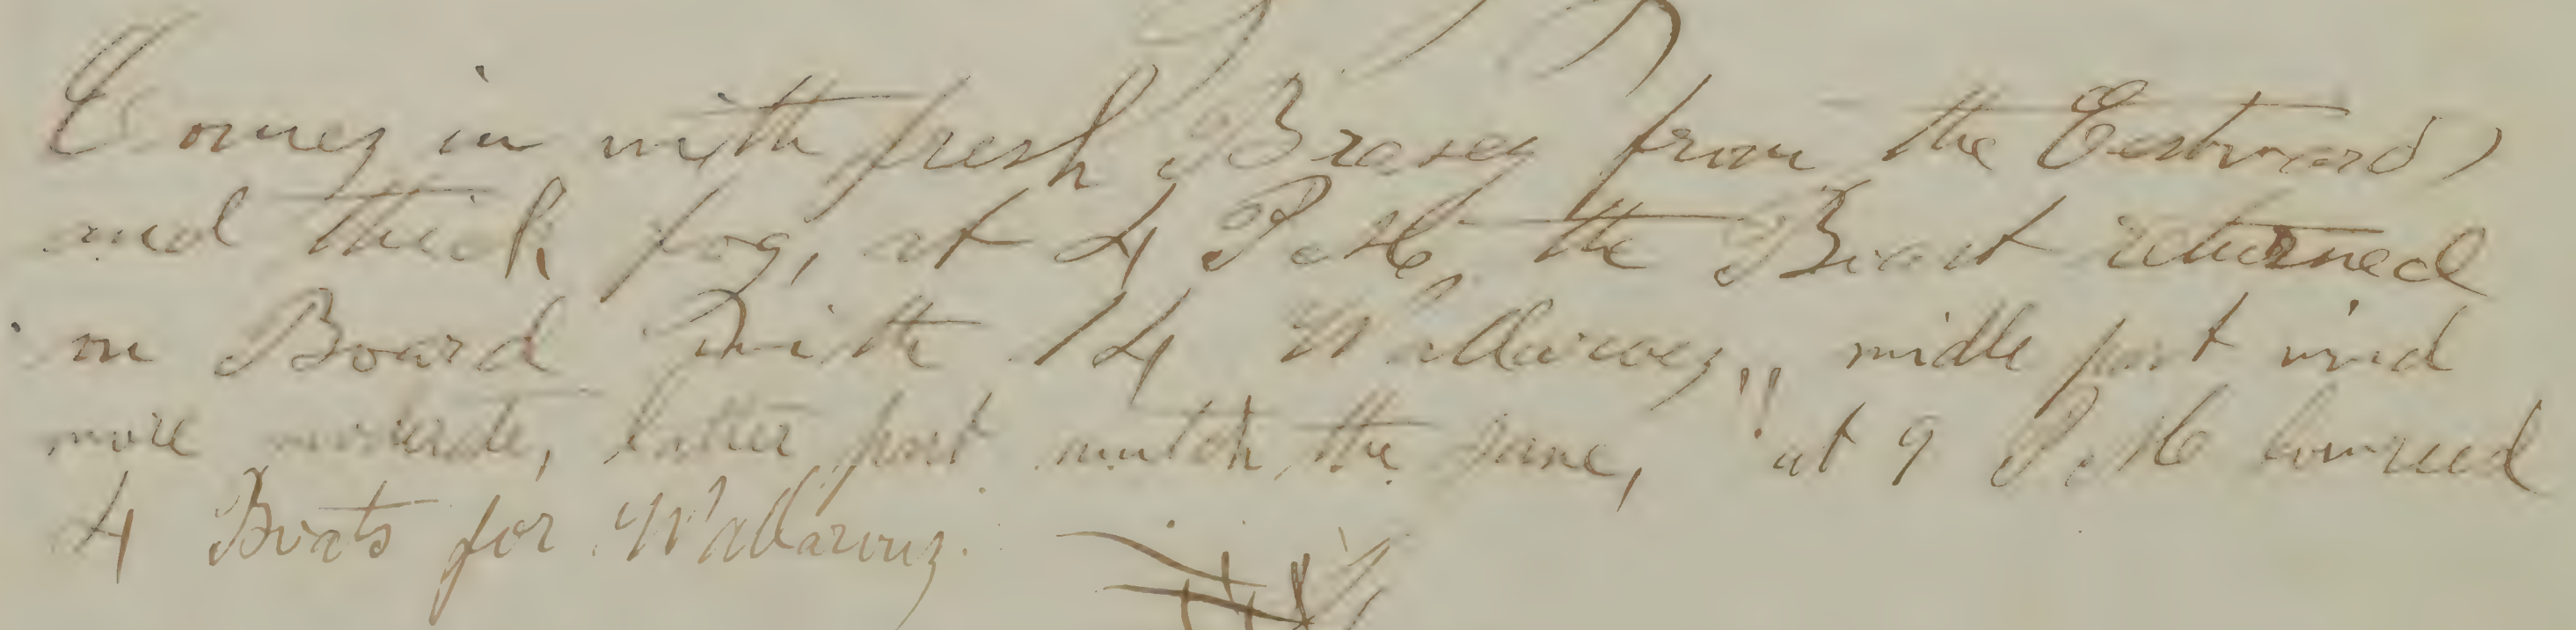 Comes in with fresh Breses from the Eastward
and thick fog, at 4 P. M. the Boat returned
on Board With 14 Wallarouz,, midle part wind
more moderate, latter part mutch the same, at 9 P. M lowered
4 Boats for Wallarouz.